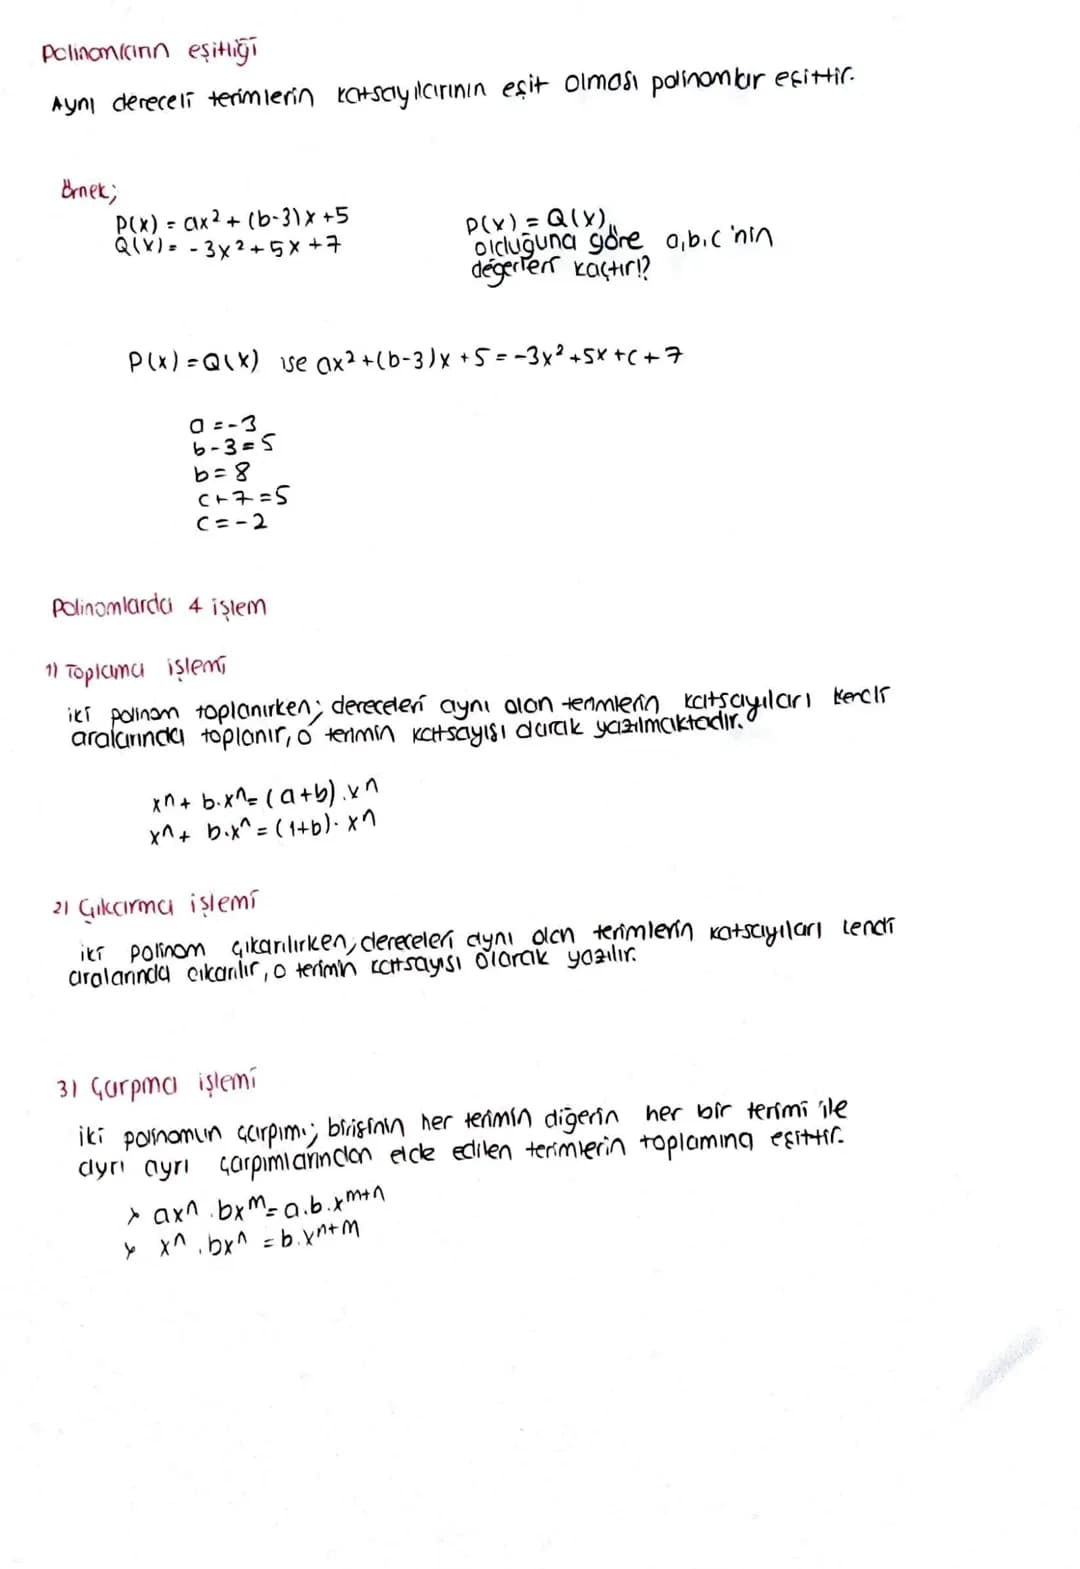 Polinomların eşitliği
Aynı dereceli terimlerin katsayılarının eşit olması polinomlar eşittir.
Örnek;
P(x) = ax² + (b-3)x +5
Q(x) = -3x²+5x +7
P(x) = Q(x)
olduğuna göre a,b,c 'nin
değerleri kaçtır!?
P(x) = Q(x) ise ax²+(b-3)x +5 = -3x²+5x +c+7
a = -3
b-3=5
b=8
c+7=5
c=-2
Polinomlarda 4 işlem
1) Toplama işlemi
iki polinom toplanırken; dereceleri aynı olan terimlerin katsayıları kendi
aralarında toplanır, o terimin katsayısı olarak yazılmaktadır.
xⁿ+ b.xⁿ= (a+b).xⁿ
xⁿ+ b.xⁿ = (1+b). xⁿ
2) Çıkarma işlemi
iki polinom çıkarılırken, dereceleri aynı olan terimlerin katsayıları kendi
aralarında çıkarılır, o terimin katsayısı olarak yazılır.
3) Çarpma işlemi
iki polinomun çarpımı; birisinin her terimin diğerin her bir terimi ile
ayrı ayrı çarpımlarından elde edilen terimlerin toplamına eşittir.
> axⁿ.bxᵐ= a.b.xᵐ⁺ⁿ
> xⁿ.bxⁿ = b.xⁿ⁺ᵐ